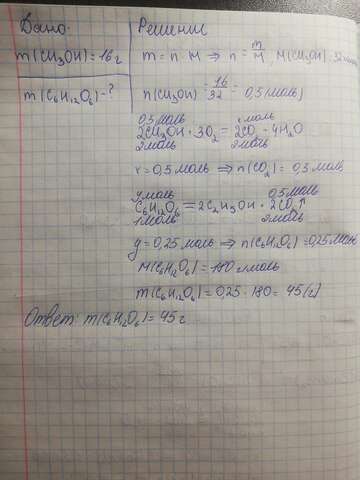 Дано:
m(CH₃OH)=16г
m(C₆H₁₂O₆)-?
Решение
m = n · M ⇒ n = m/M, M(CH₃OH)=32
n(CH₃OH) = 16/32 = 0,5(моль)
0,5моль xмоль
2CH₃OH + 3O₂ = 2CO₂ + 4H₂O
2моль 2моль
x = 0,5моль ⇒ n(CO₂) = 0,5моль
yмоль 0,5моль
C₆H₁₂O₆ = 2C₂H₅OH + 2CO₂↑
1моль 2моль
y = 0,25моль ⇒ n(C₆H₁₂O₆) = 0,25моль
M(C₆H₁₂O₆) = 180 г/моль
m(C₆H₁₂O₆) = 0,25 · 180 = 45(г)
Ответ: m(C₆H₁₂O₆) = 45г